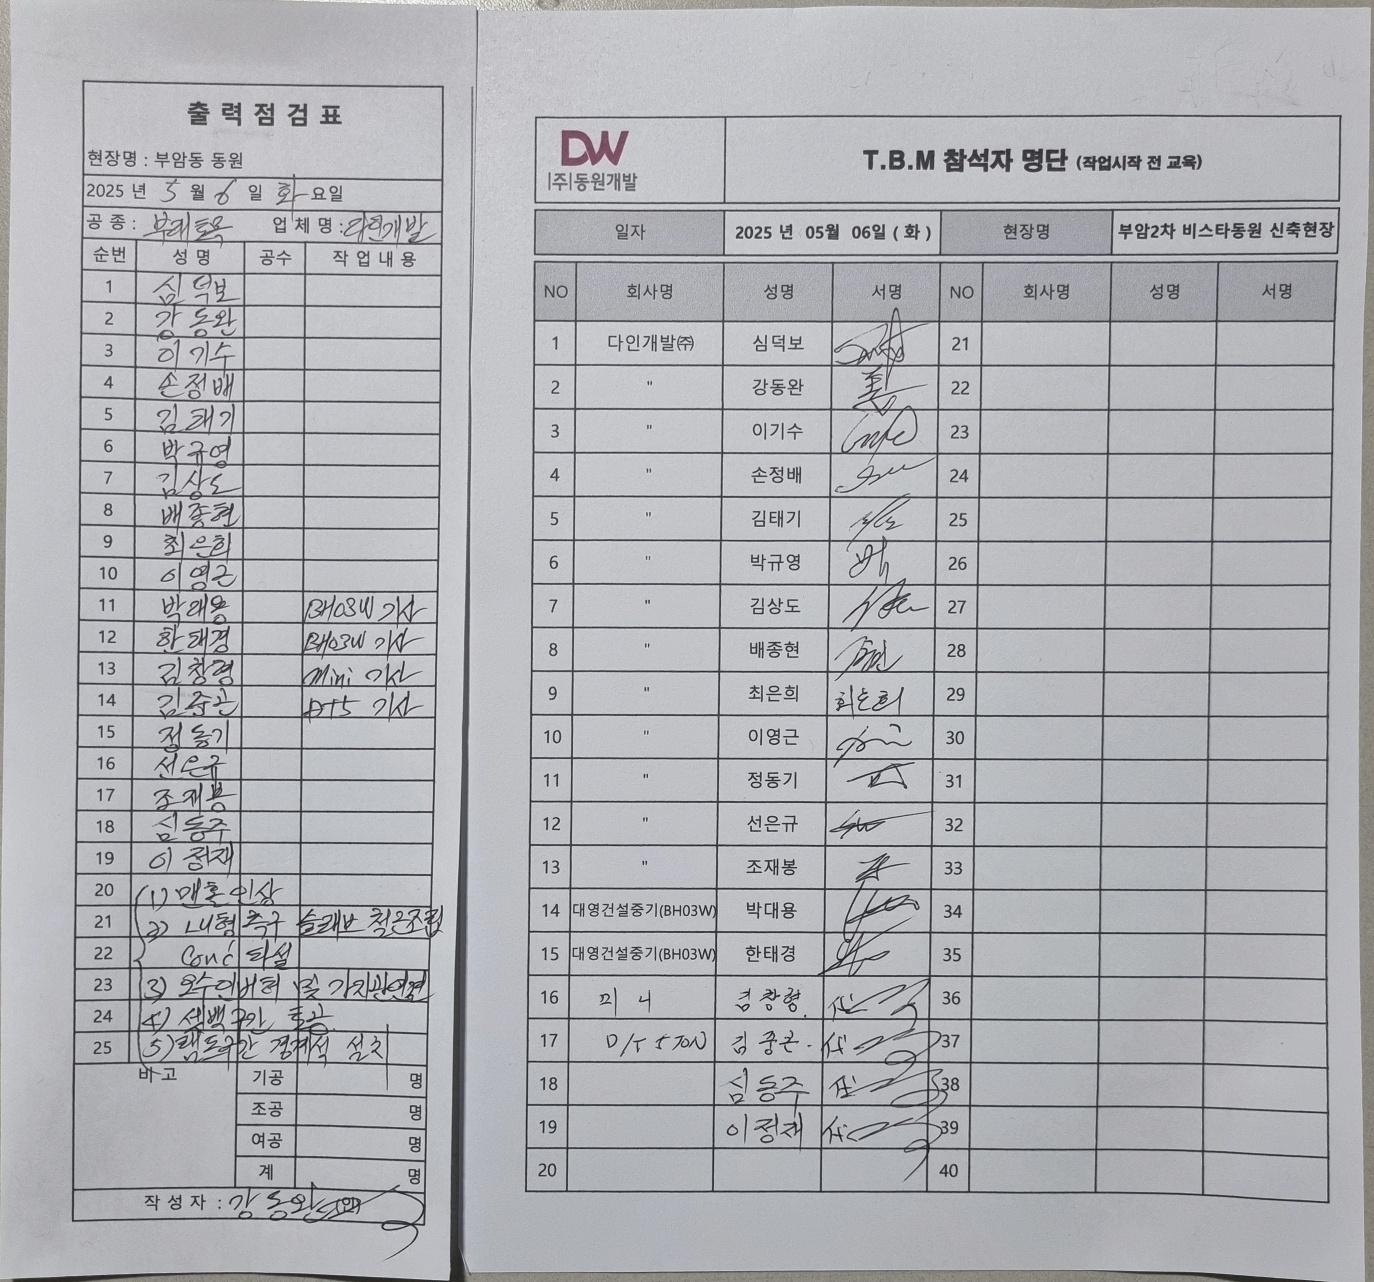 출력점검표
현장명 : 부암동 동원
2025 년 5 월 6 일 화 요일
공 종 : 부대토목 업 체 명 : 다인개발
순번 성 명 공수 작 업 내 용
1 심덕보
2 강동완
3 이기수
4 손정배
5 김태기
6 박규영
7 김상도
8 배종현
9 최은희
10 이영근
11 박대용 BH03W 기사
12 한태경 BH03W 기사
13 김창형 mini 기사
14 김중곤 DT5 기사
15 정동기
16 선은규
17 조재봉
18 심동주
19 이정재
20 (1) 맨홀 인상
21 2) L형 측구 슬래브 철근조립
22 Conc 타설
23 3) 오수인버터 및 가지관연결
24 4) 셋백구간 토공
25 5) 램프구간 경계석 설치
비고
기공 명
조공 명
여공 명
계 명
작 성 자 : 강동완 (인)
DW
(주)동원개발
T.B.M 참석자 명단 (작업시작 전 교육)
일자 2025 년 05월 06일 ( 화 ) 현장명 부암2차 비스타동원 신축현장
NO 회사명 성명 서명 NO 회사명 성명 서명
1 다인개발㈜ 심덕보 21
2 " 강동완 22
3 " 이기수 23
4 " 손정배 24
5 " 김태기 25
6 " 박규영 26
7 " 김상도 27
8 " 배종현 28
9 " 최은희 최은희 29
10 " 이영근 30
11 " 정동기 31
12 " 선은규 32
13 " 조재봉 33
14 대영건설중기(BH03W) 박대용 34
15 대영건설중기(BH03W) 한태경 35
16 미니 김창형 36
17 D/T 5TON 김중곤 37
18 심동주 38
19 이정재 39
20 40